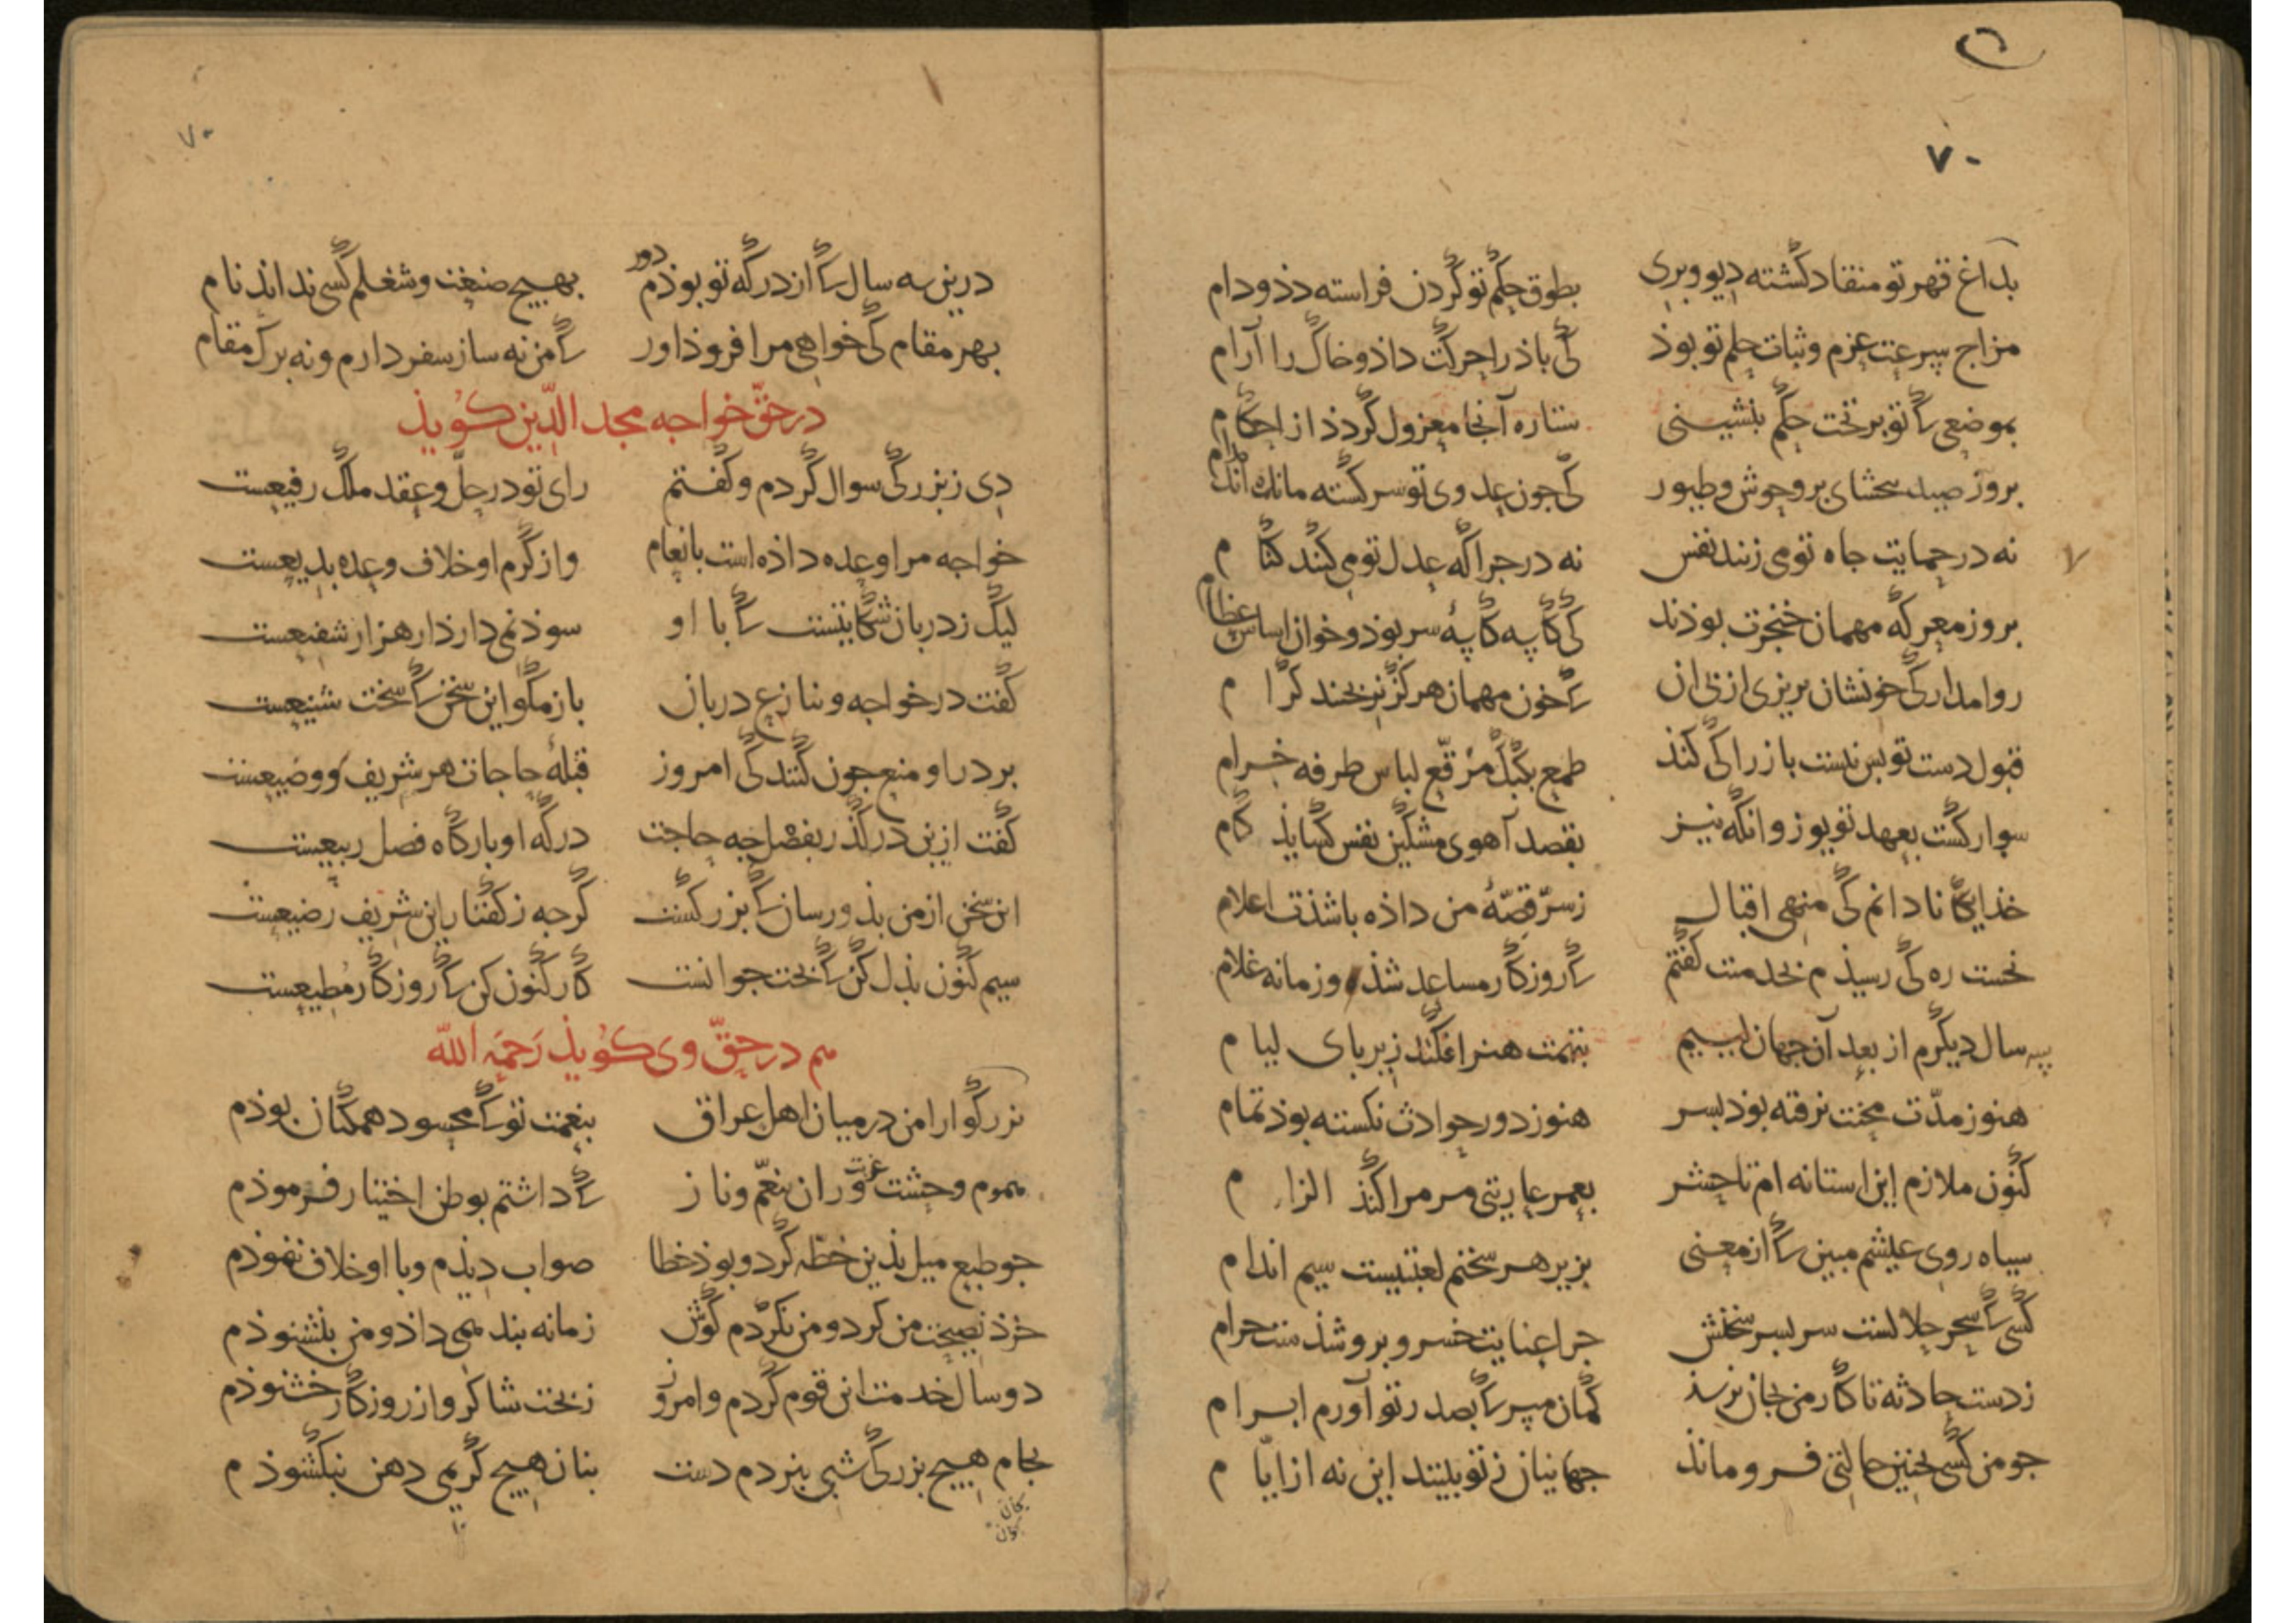 ۷۰
بداغ قهر تو منقاد گشته دیو و پری بطوق حکم تو گردن فراشته دذ و دام
مزاج سرعت عزم و ثبات حلم تو بوذ کی باذ را حرکت داذ و خاک را آرام
بموضعی کأ تو بر تخت حکم بنشینی ستاره آنجا معزول گردذ از احکام
بروز صید ببخشای بر وحوش و طیور کی جون عدوی تو سرگشته مانده‌اند
نه در حمایت جاه تو می زنند نفس نه در جراگه عدل تو می کنند کنام
بروز معرکه مهمان خنجرت بوذند کی کاسه کاسه سر بوذ و خوان اساس عظام
روا مدار کی خونشان بریزی از پی آن کأ خون مهمان هرگز نریختند کرام
قبول دست تو بس نیست باز را کی کند طمع بکبک مرقع لباس طرفه خرام
سوار گشت بعهد تو یوز وانگه نیز بقصد آهوی مشکین نفس گشایذ گام
خذایگانا دانم کی منهی اقبال ز سرّ قصّهٔ من داذه باشذت اعلام
نخست ره کی رسیذم بخدمتت گفتم کأ روزگار مساعد شذ و زمانه غلام
سه سال دیگرم از بعد آن جهان لییم بتهمت هنر افکند زیر پای لیام
هنوز مدّت محنت نرفته بوذ بسر هنوز دور حوادث نگشته بوذ تمام
کنون ملازم این استانه ام تا حشر بعمر عاریتی مر مرا کنذ الزام
سیاه روی عیشم مبین کأ از معنی بزیر هر سخنم لعبتیست سیم اندام
کسی کأ سحر حلالست سر بسر سخنش جرا عنایت خسرو برو شذست حرام
ز دست حادثه تا کار من بجان نرسذ گمان مبر کأ بصدر تو آورم ابرام
جو من کسی بجنین حالتی فرو مانذ جهانیان ز تو بینند این نه از ایّام
۷۰
درین سه سال کأ از درگه تو بوذم دور بهیج صنعت و شغلم کسی نداند نام
بهر مقام کی خواهی مرا فروذ اور کأ من نه ساز سفر دارم و نه برگ مقام
در حقّ خواجه مجد الدّین گویذ
دی ز بزرگی سوال کردم و گفتم رای تو در حلّ و عقد ملک رفیعست
خواجه مرا وعده داذه است بانعام واز کرم او خلاف وعده بدیعست
لیک ز دربان شکایتست کأ با او سوذ نمی دارذ ار هزار شفیعست
گفت در خواجه و تنازع دربان باز مگو این سخن کأ سخت شنیعست
بر در او منع جون کنند کی امروز قبلهٔ حاجات هر شریف و وضیعست
گفت ازین در گذر بفضل جه حاجت درگه او بارگاه فصل ربیعست
این سخن از من بذو رسان کأ بزرگست گرجه ز گفتار این شریف رضیعست
سیم کنون بذل کن کأ بخت جوانست کار کنون کن کأ روزگار مطیعست
هم در حقّ وی گویذ رحمه الله
بزرگوارا من در میان اهل عراق بنعمت تو کأ محسود همگنان بوذم
هموم وحشت غربت وران تنعّم و ناز کأ داشتم بوطن اختیار فرموذم
جو طبع میل بذین خطّه کرد و بوذ خطا صواب دیذم و با او خلاف ننموذم
خرذ نصیحت من کرد و من نکردم گوش زمانه پند همی داذ و من بنشنوذم
دو سال خدمت این قوم کردم و امروز ز بخت شاکر و از روزگار خشنوذم
بجام هیج بزرگی شبی نبردم دست بنان هیج کریمی دهن بنگشوذم